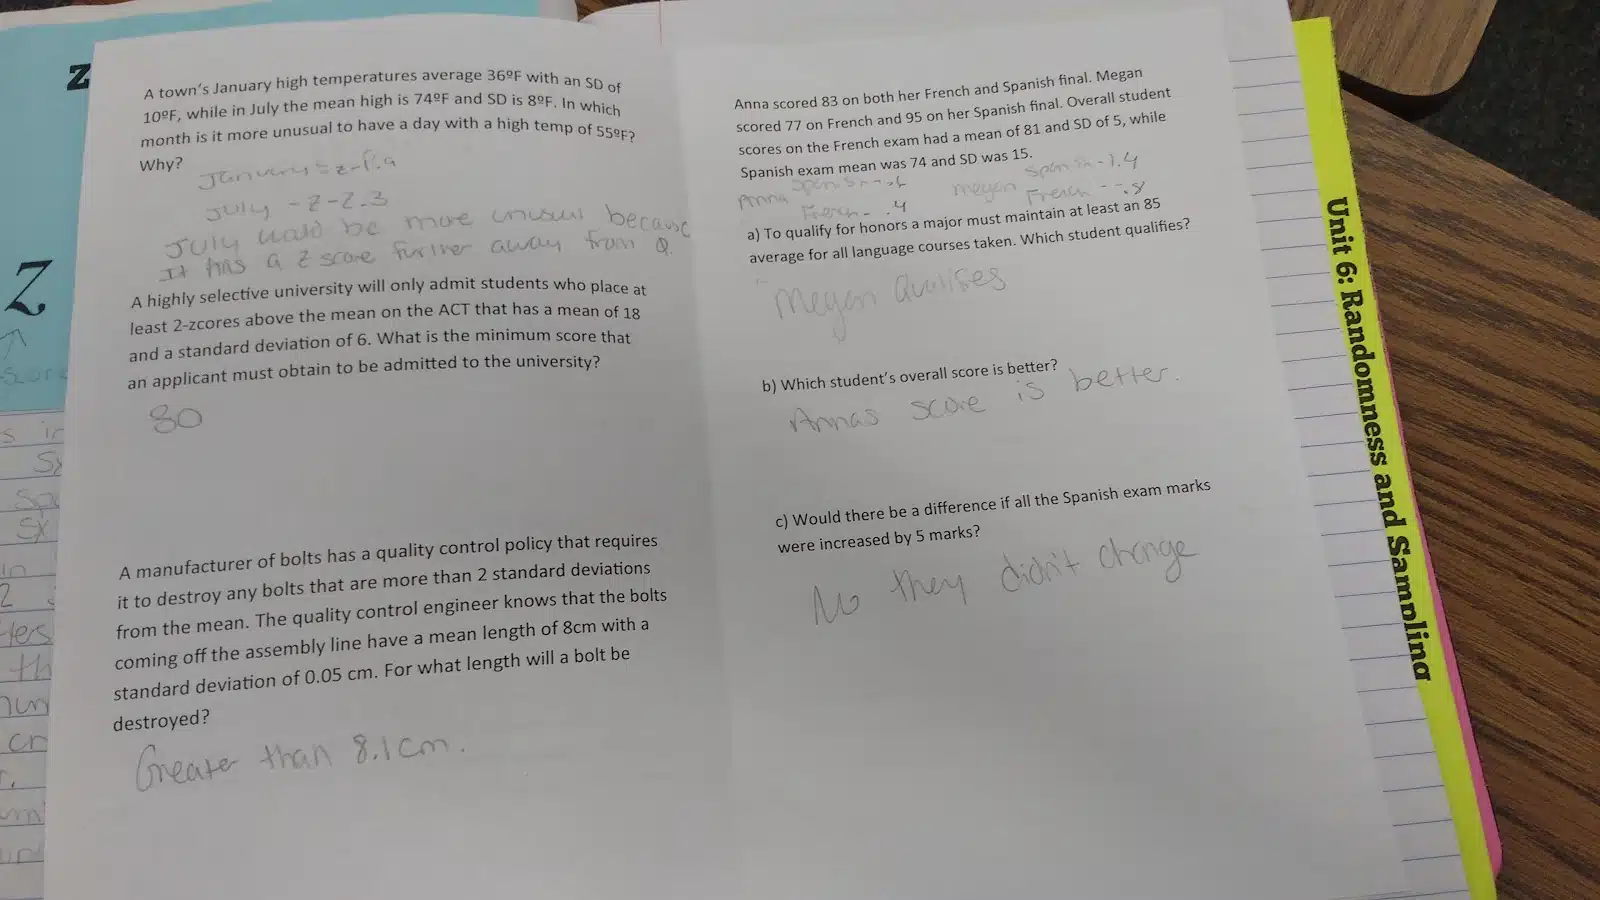 Z
z
A town's January high temperatures average 36ºF with an SD of
10ºF, while in July the mean high is 74ºF and SD is 8ºF. In which
month is it more unusual to have a day with a high temp of 55ºF?
Why?
January = z-1.9
July - z-2.3
July would be more unusual because
It has a z score further away from 0.
A highly selective university will only admit students who place at
least 2-zcores above the mean on the ACT that has a mean of 18
and a standard deviation of 6. What is the minimum score that
an applicant must obtain to be admitted to the university?
30
A manufacturer of bolts has a quality control policy that requires
it to destroy any bolts that are more than 2 standard deviations
from the mean. The quality control engineer knows that the bolts
coming off the assembly line have a mean length of 8cm with a
standard deviation of 0.05 cm. For what length will a bolt be
destroyed?
Greater than 8.1cm.
Anna scored 83 on both her French and Spanish final. Megan
scored 77 on French and 95 on her Spanish final. Overall student
scores on the French exam had a mean of 81 and SD of 5, while
Spanish exam mean was 74 and SD was 15.
Anna Spanish - .6
French - .4
Megan Spanish - 1.4
French - -.8
a) To qualify for honors a major must maintain at least an 85
average for all language courses taken. Which student qualifies?
Megan Qualifies
b) Which student's overall score is better?
Annas score is better.
c) Would there be a difference if all the Spanish exam marks
were increased by 5 marks?
No they didn't change
Unit 6: Randomness and Sampling